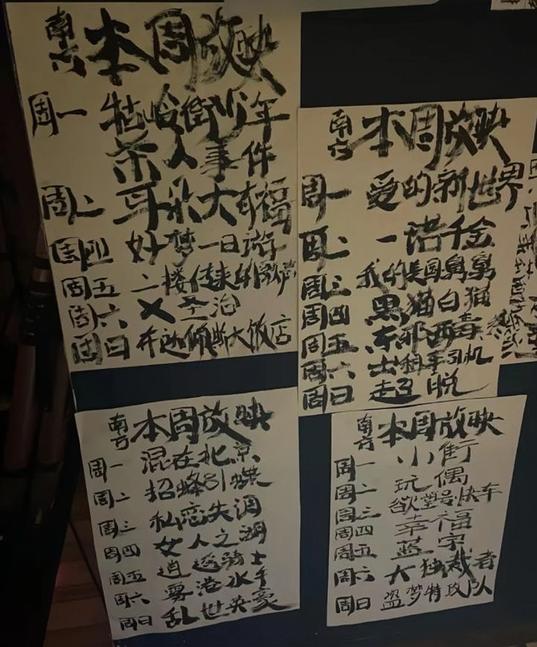 南六 本周放映
周一 牯岭街少年
杀人事件
周二 耳朵大有福
周四 好梦一日游
周五 二楼传来的歌声
周六 X圣治
周日 布达佩斯大饭店
南六 本周放映
周一 爱的新世界
周二 一诺千金
周三 我的美国舅舅
周四 黑猫白猫
周五 东邪西毒
周六 出租车司机
周日 超脱
南方 本周放映
周一 混在北京
周二 招蜂引蝶
周三 私恋失调
周四 女人之湖
周五 逍遥骑士
周六 雾港水手
周日 乱世英豪
南方 本周放映
周一 小街
周二 玩偶
周三 欲望号快车
周四 幸福
周五 蓝宇
周六 大独裁者
周日 盗梦特攻队